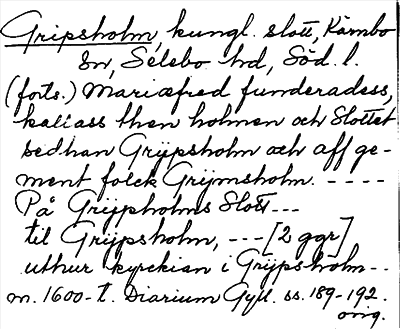 Gripsholm, kungl. slott, Kärnbo
sn, Selebo hd, Söd. l.
(forts.) Mariæfred funderadess,
kallass then holmen och Slottet
sedhan Grijpsholm och aff ge-
ment folck Grijmsholm. ----
På Grijpholms Slott---
til Grijpsholm, ---[2 ggr]
uthur kyrckian i Grijpsholm--
m. 1600-t. Diarium Gyll. ss. 189-192.
orig.